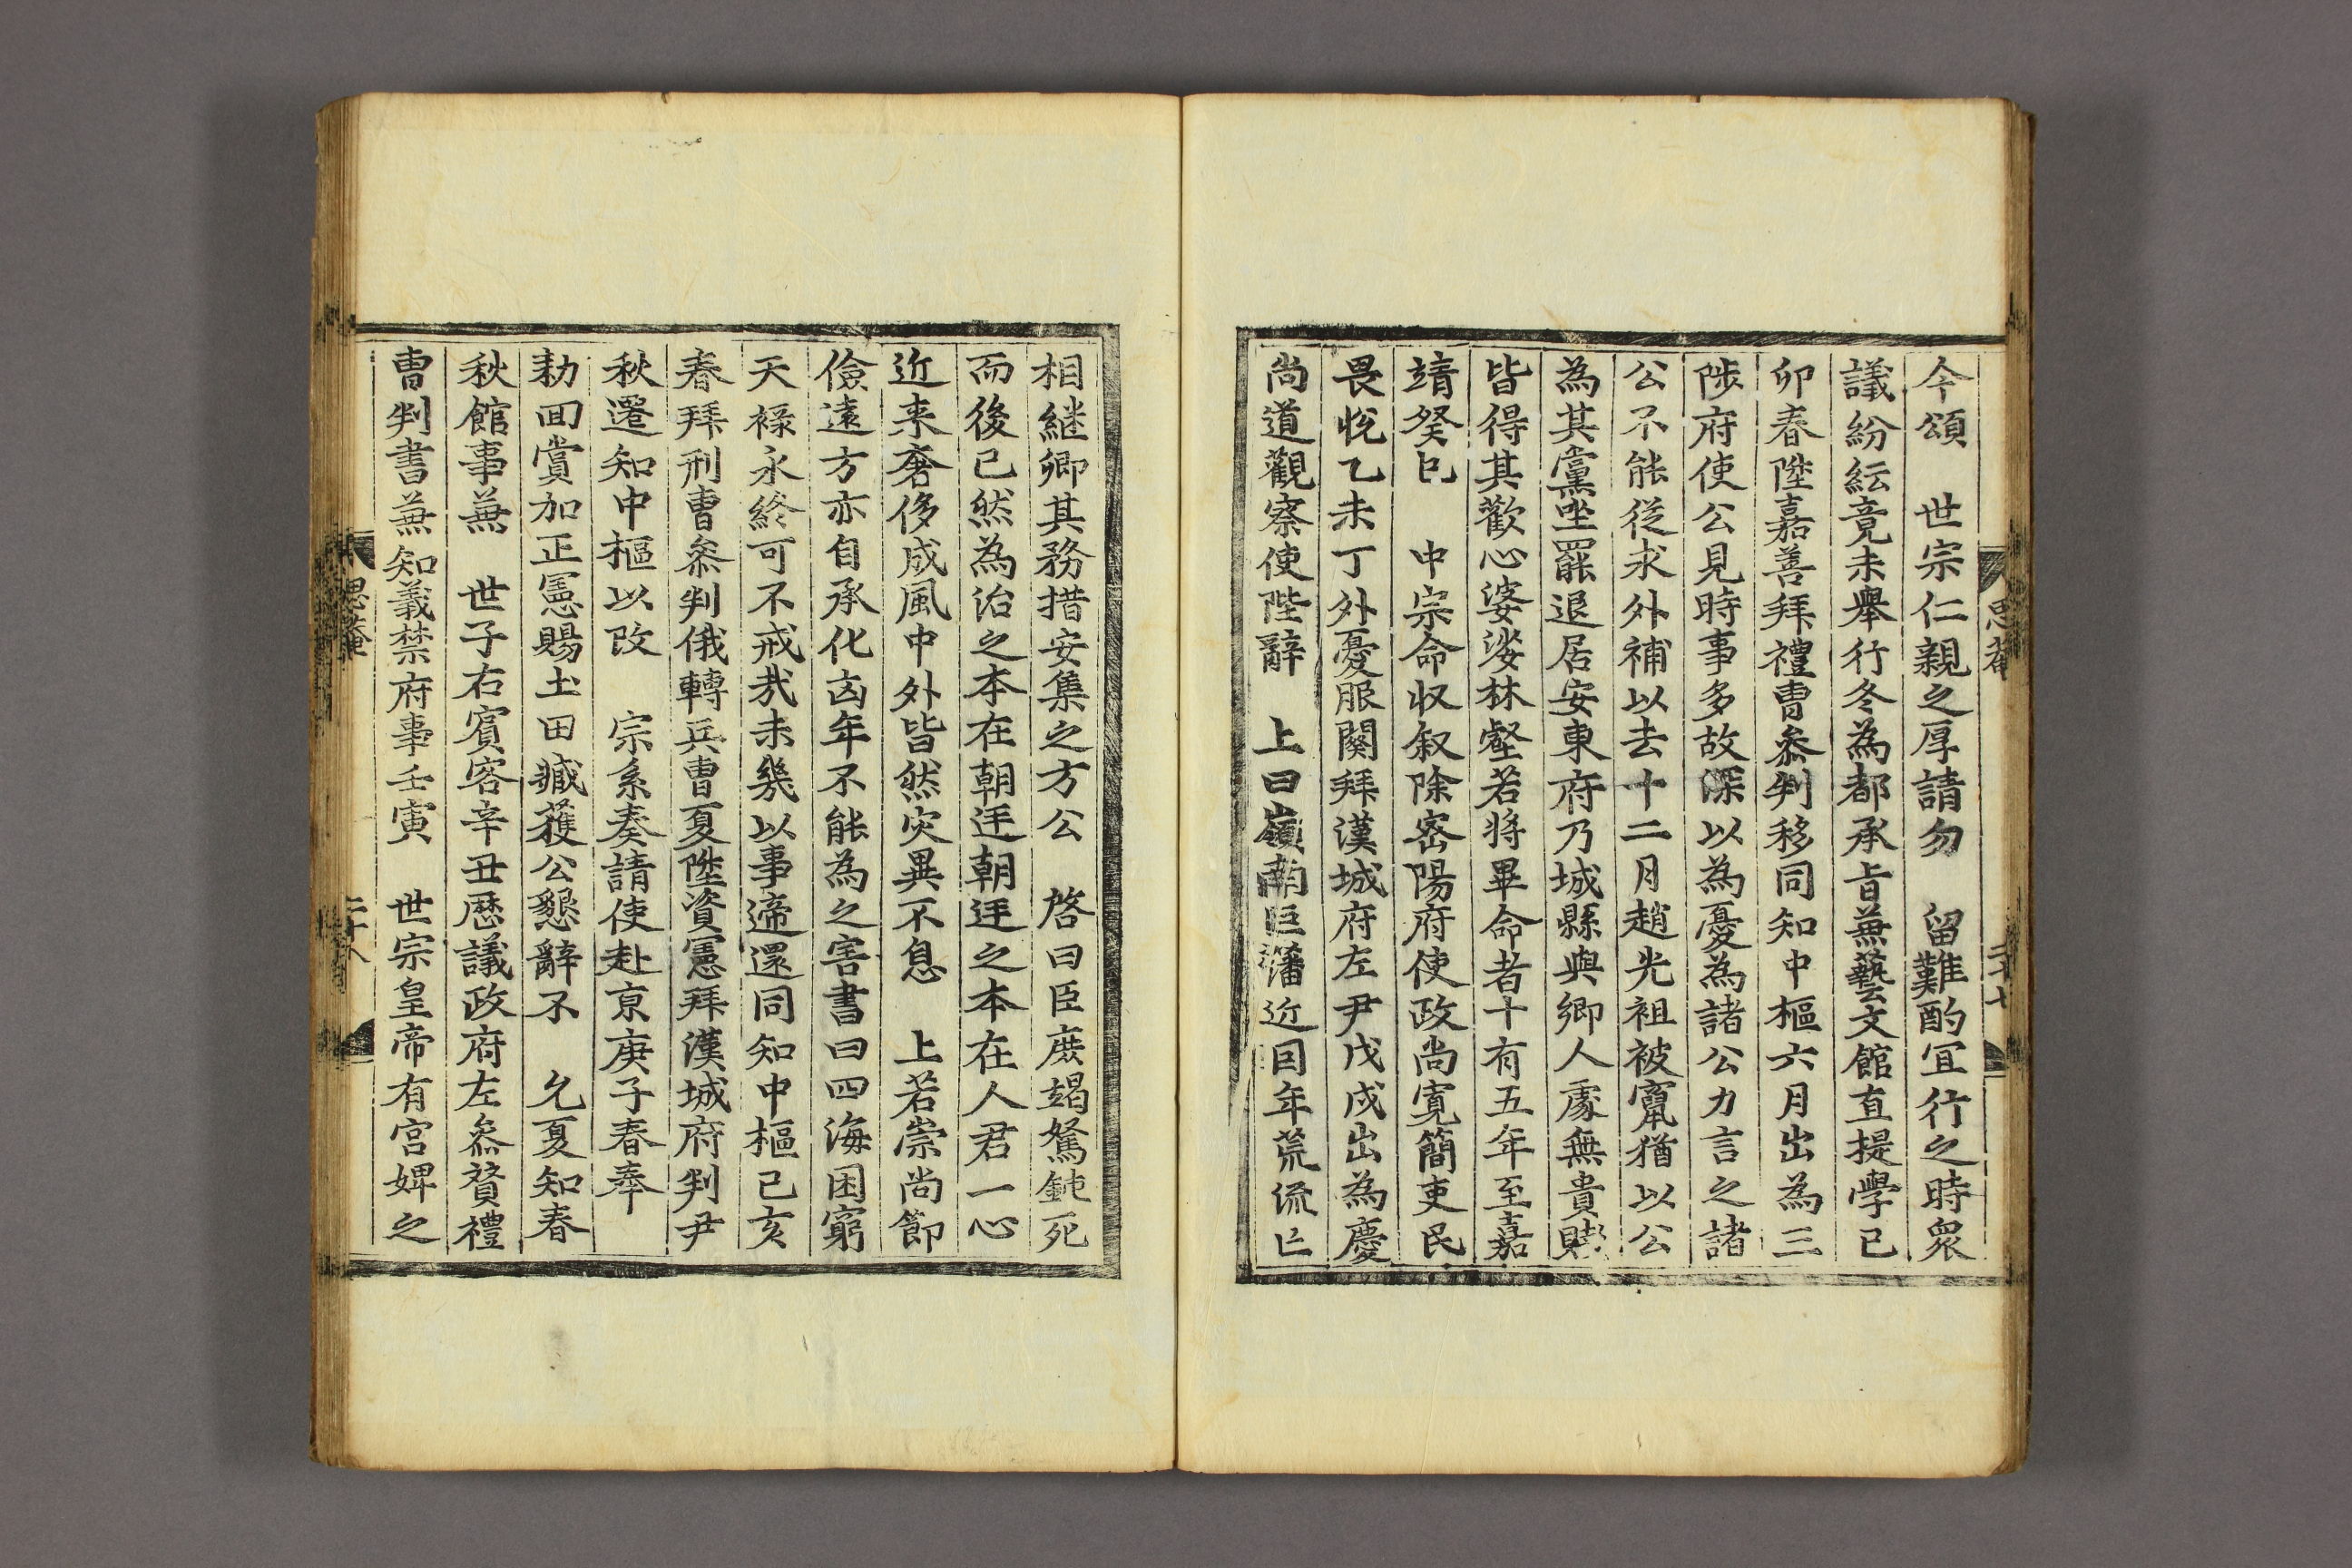 今頌　世宗仁親之厚請勿　留難酌冝行之時衆
議紛紜竟未舉行冬為都承旨蕪藝文館直提學已
卯春陞嘉善拜禮曹叅判移同知中樞六月出為三
陟府使公見時事多故深以為憂為諸公力言之諸
公不能從求外補以去十二月趙光祖被竄猶以公
為其黨坐罷退居安東府乃城縣與鄉人處無貴賤
皆得其歡心婆娑林壑若將畢命者十有五年至嘉
靖癸巳　中宗命収叙除密陽府使政尚寬簡吏民
畏悅乙未丁外憂服闋拜漢城府左尹戊戌出為慶
尚道觀察使陛辭　上曰嶺南巨藩近因年荒流亡
思菴
二十七
相継卿其務措安集之方公　啓曰臣庶竭駑鈍死
而後已然為治之本在朝廷朝廷之本在人君一心
近来奢侈成風中外皆然灾異不息　上若崇尚節
儉遠方亦自承化凶年不能為之害書曰四海困窮
天祿永終可不戒哉未幾以事遞還同知中樞己亥
春拜刑曹叅判俄轉兵曹夏陞資憲拜漢城府判尹
秋遷知中樞以改　宗系奏請使赴京庚子春奉
勑回賞加正憲賜土田臧獲公懇辭不　允夏知春
秋館事蕪　世子右賓客辛丑歷議政府左叅贊禮
曹判書蕪知義禁府事壬寅　世宗皇帝有宮婢之
思菴
二十八